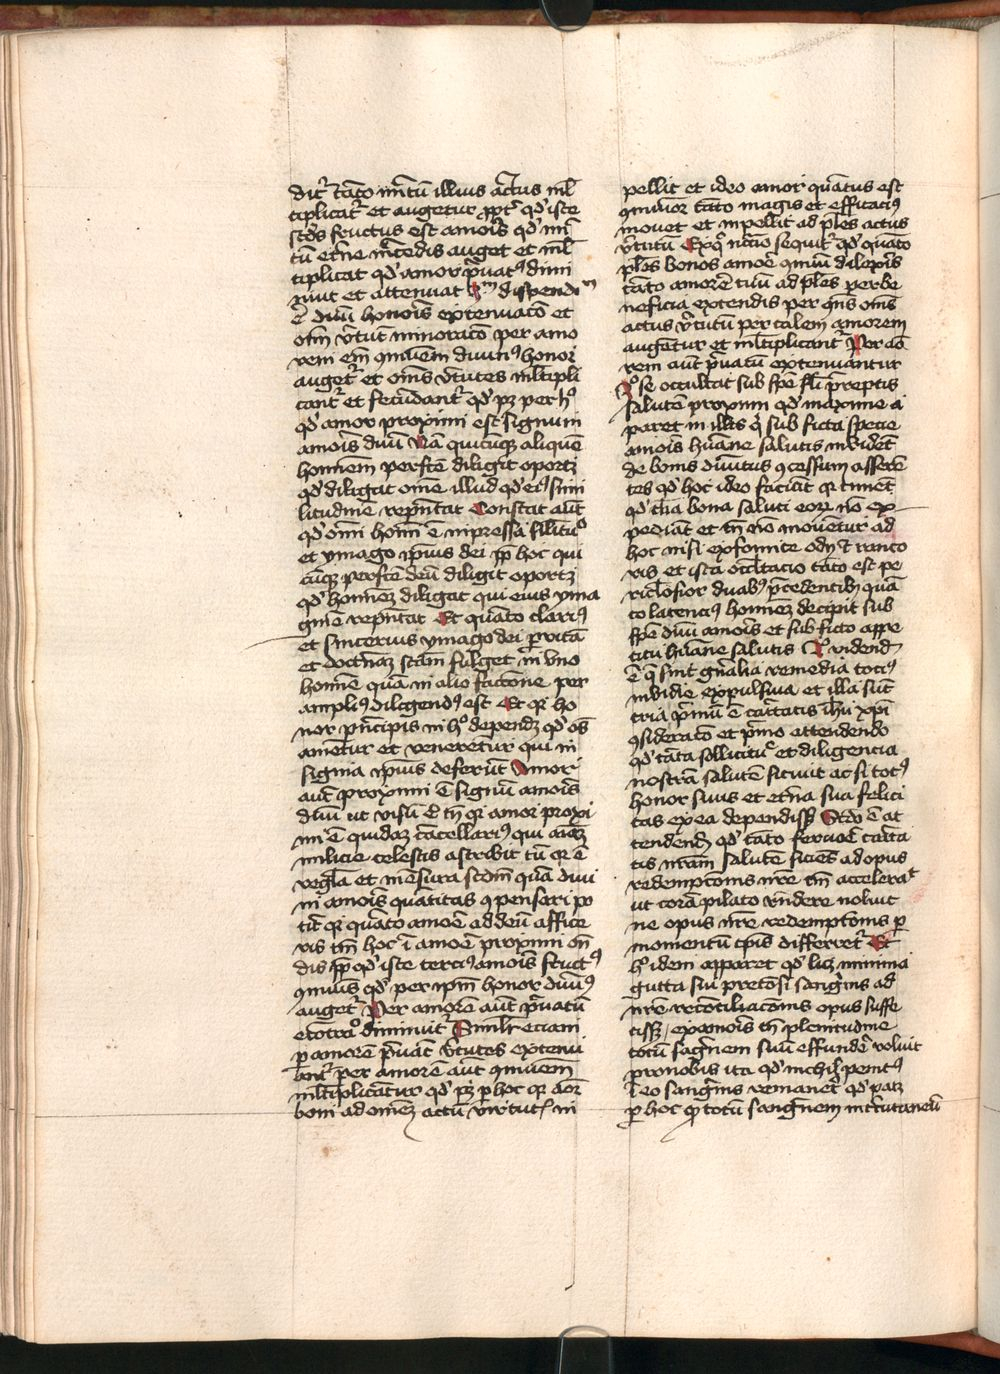 dicit̛ tāto mītū illius actus ml̄
tiplicat̛ et augetur ꝓpt̛ qd' iste
scd̄s fructus est amoris qd' mī
tū et̛ne m̛cedis auget et ml̄
tiplicat qd' amor p̛uatꝰ dimi
nuit et attenuat dispendiū
ē diuī honoris extenuacō et
om̄ v̛tutū minoracō per amo
rem em̄ cōmunem diuinꝰ honor
auget̛ et om̄s v̛tutes ml̄tipli
cant̛ et fecūdant̛ qd' pꝫ per hͦ
qd' amor proximi est signum
amoris diuī Nā quicūqꝫ aliquē
hominem perfcē diligit oportꝫ
qd' diligat om̄e illud qd' eiꝰ simi
litudinē rep̄ntat Constat aūt
qd' omni homi ē impressa silituͦ
et ymago ipsius dei ꝓp̄ hoc qui
cūqꝫ perfcē deū diligit oportꝫ
qd' hominēꝫ diligat qui eius yma
ginē rep̄ntat Et quāto clariꝰ
et sinceriꝰ ymago dei per vitā
et doctrinaꝫ scām fulget in vno
homine quā in alio tanto per
ampliꝰ diligendꝰ est Et qꝛ ho
nor principis in hͦ dependꝫ qd' oēs
amētur et venerētur qui in
signia ipsius deferūt Amor
aūt proximi ē signū amoris
diuī ut visū ē tū qꝛ amor proxi
mi ē quidaꝫ cācellariꝰ qui
milicie celestis astribit tū qꝛ ē
regl̄a et mēsura scdm̄ quā diui
ni amoris quātitas cōpensari po
tit̛ qꝛ quāto amorē ad deū affice
ris tm̄ hoc ī amorē proximi
dis ꝓp̄ qd' iste terciꝰ amoris fructꝰ
cōmunis qd' per ipm̄ honor diuinꝰ
auget̛ Per amorē aūt p̛uatū
econtraͦ diminuit̛ Similr̄ eciam
ꝑ amorē p̛uat̄ v̛tutes extenu
ant̛ per amorē aūt cōmunem
ml̄tiplicātur qd' pꝫ ꝑ hoc qꝛ amor
boni ad omnēꝫ actū virtutis in
pellit et ideo amor quātus est
cōmunior tāto magis et efficaciꝰ
mouet et inpellit ad pl̄es actus
v̛tutū Ex qͦ n̄cio sequit̛ qd' quāto
pl̄es bonos amorē cōmuni dilexeris
tāto amorē tuū ad pl̄es per be
neficia extendis per qn̄s om̄s
actus v̛tutū per talem amorem
augētur et ml̄tiplicant̛ Per amo
rem aūt p̛uatū extenuantur
3ͦ se occultat sub spe fl̄i p̛reptis
salutē proximi qd' maxime a
paret in illis qͥ sub ficta specie
amoris humane salutis inuidēt
de bonis diuinitus cōcessum asserē
tes qd' hoc ideo faciūt qꝛ timēt
qd' talia bona saluti eorꝝ nō ex
pediāt et tn̄ nō mouētur ad
hoc nisi ex fomite odij et ranco
ris et ista occltacio tāto est pe
riculosior duabꝰ p̛cedentibꝫ quā
to latenciꝰ homineꝫ decipit sub
spē diuī amoris et sub ficto appe
titu humane salutis videnď
ē q̄ sint gn̄alia remedia tociꝰ
inuidie expulsiua et illa sūt
tria p̛mū ē caritatis ihū xp̄i
cōsideracō et p̛mo attendendo
qd' tāta sollicituͤ et diligencia
nostrā salutē sitiuit ac si totꝰ
honor suus et et̛na sua felici
tas ex ea dependissꝫ Scdo ē at
tendenď qd' tāto feruore carita
tis nrām salutē siciēs ad opus
redemptōnis nrē tm̄ accelerat
ut corā pilato rn̄dere noluit
ne opus nrē redemptōnis ꝑ
momentū tp̄is differret̛ Et
hͦ idem apparet qd' licꝫ minima
gutta sui preciosi sangwinis ad
nrē recōciliacōnis opus suffe
cissꝫ ex amoris tn̄ plenitudine
totū sagwinem suū effunde̛ voluit
pro nobis ita qd' nichil penitꝰ
ī eo sangwinis remanēt̛ qd' patꝫ
ꝑ hoc qꝛ totū sangwinem intercutaneū